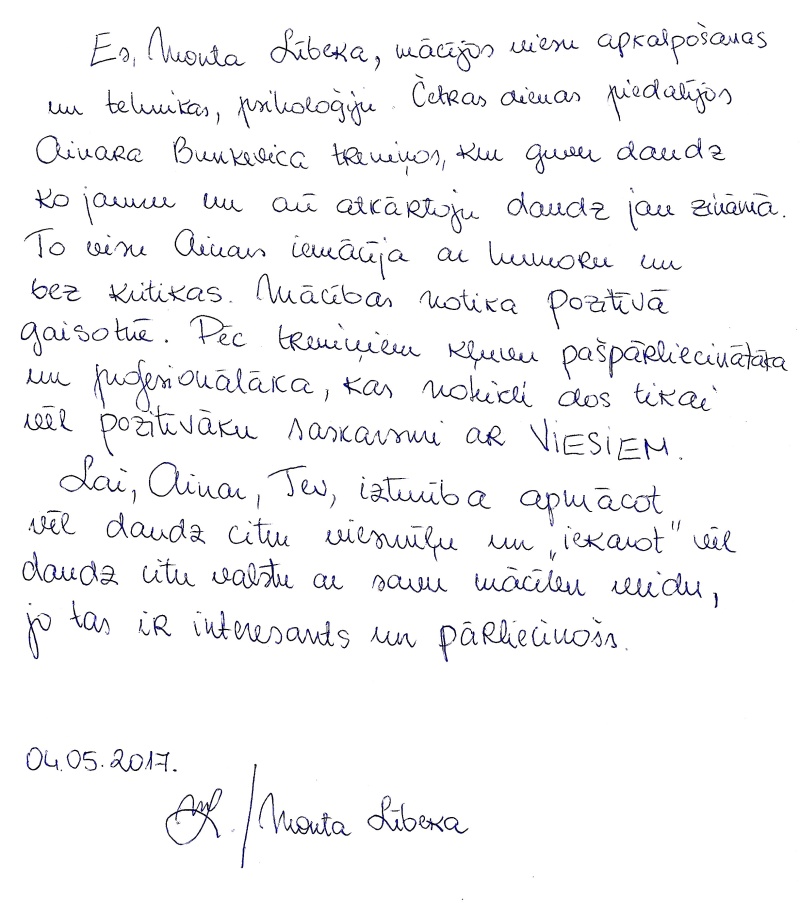 Es, Monta Lībeka, mācījos viesu apkalpošanas
un tehnikas, psiholoģiju. Četras dienas piedalījos
Ainara Bunkeviča treniņos, kur guvu daudz
ko jaunu un arī atkārtoju daudz jau zināmā.
To visu Ainars iemācīja ar humoru un
bez kritikas. Mācības notika pozitīvā
gaisotnē. Pēc treniņiem kļuvu pašpārliecinātāka
un profesionālāka, kas noteikti dos tikai
vēl pozitīvāku saskarsmi AR VIESIEM.
Lai, Ainar, Tev, izturība apmācot
vēl daudz citu viesmīļu un „iekarot" vēl
daudz citu valstu ar savu mācību veidu,
jo tas ir interesants un pārliecinošs.
04.05.2017.
/Monta Lībeka